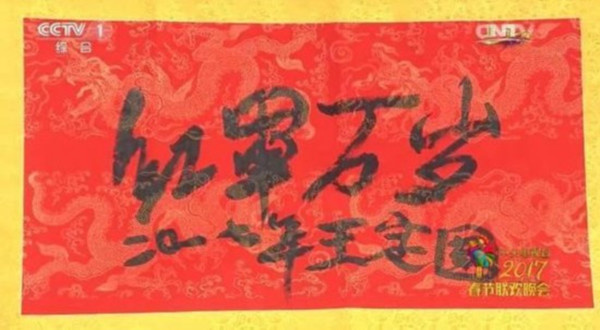 CCTV 1
综合
CNTV
红军万岁
二〇一七年王定国
2017
春节联欢晚会